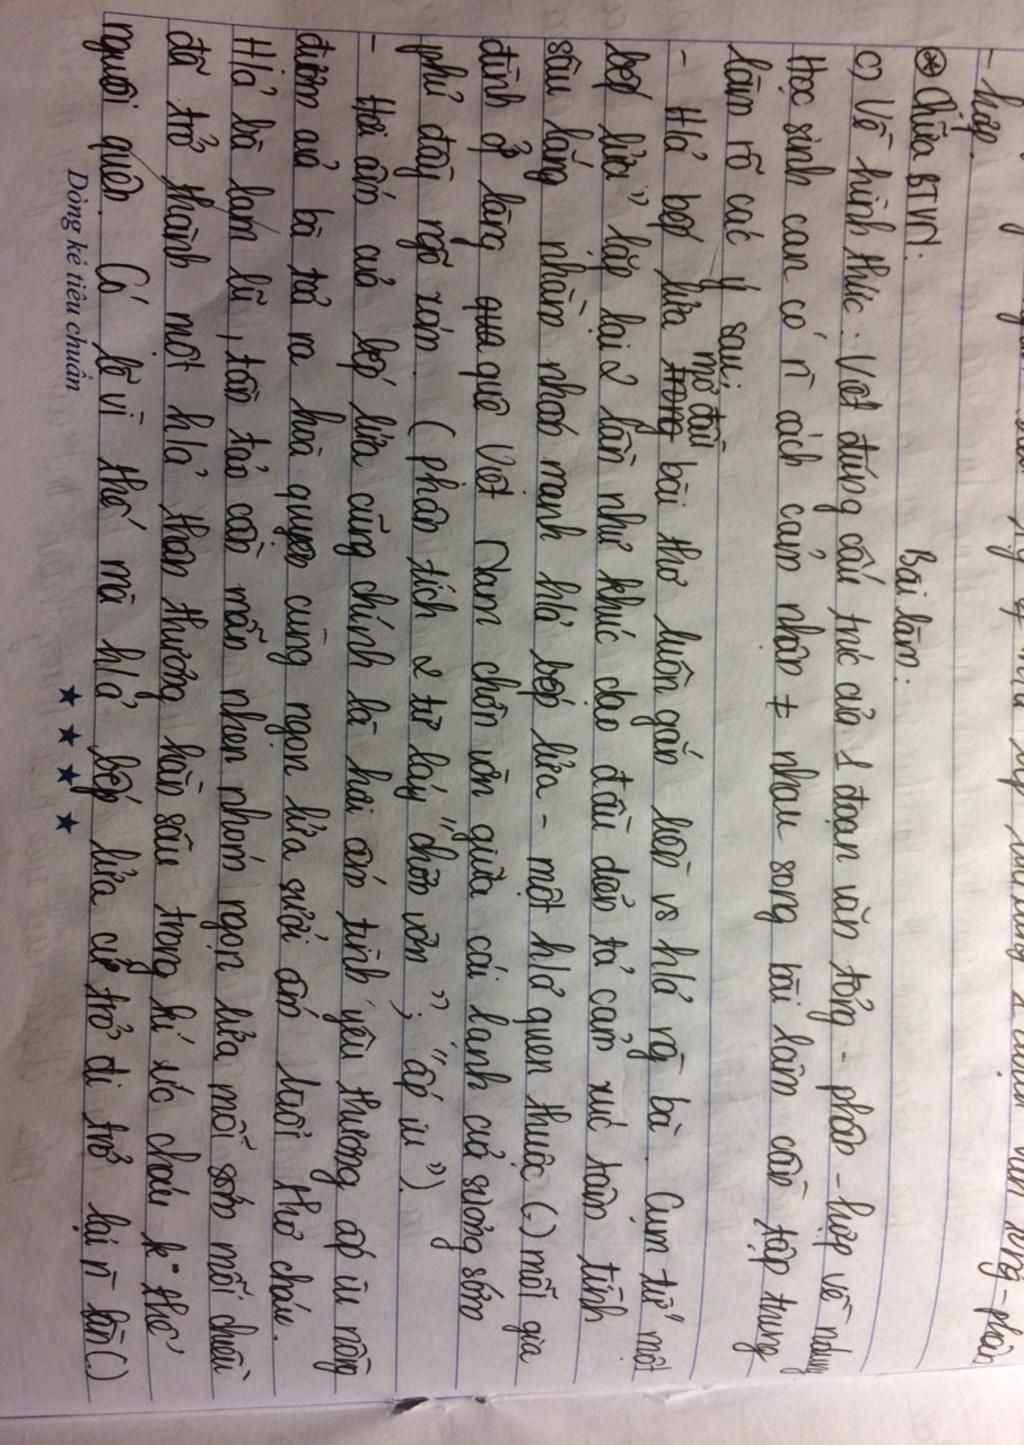 - hợp.
⊛ Chữa BTVN:
Bài làm:
c) Về hình thức: Viết đúng cấu trúc của 1 đoạn văn tổng - phân - hợp về n dung
Học sinh can có n̄ cách cảm nhận ≠ nhau song bài làm cần tập trung
làm rõ các ý sau:
- H/ả bếp lửa trong mở đầu bài thơ luôn gắn liền vs h/ả ng bà. Cụm từ "một
bếp lửa" lặp lại 2 lần như khúc dạo đầu dẫn tả cảm xúc tâm tình
sâu lắng nhằm nhấn mạnh h/ả bếp lửa - một h/ả quen thuộc (.) mỗi gia
đình ở làng qua quê Việt Nam chờn vờn giữa cái lạnh của sương sớm
phủ đầy ngõ xóm. (phân tích 2 từ láy "chờn vờn"; "ấp iu").
- Hơi ấm của bếp lửa cũng chính là hơi ấm tình yêu thương ấp iu nồng
đượm của bà tỏa ra hoà quyện cùng ngọn lửa sưởi ấm tuổi thơ cháu.
H/ả bà lam lũ, tần tảo cần mẫn nhen nhóm ngọn lửa mỗi sớm mỗi chiều
đã trở thành một h/ả thân thương hằn sâu trong kí ức cháu k° thể
người quên. Có lẽ vì thế mà h/ả bếp lửa cứ trở đi trở lại n̄ lần (.)
Dòng kẻ tiêu chuẩn